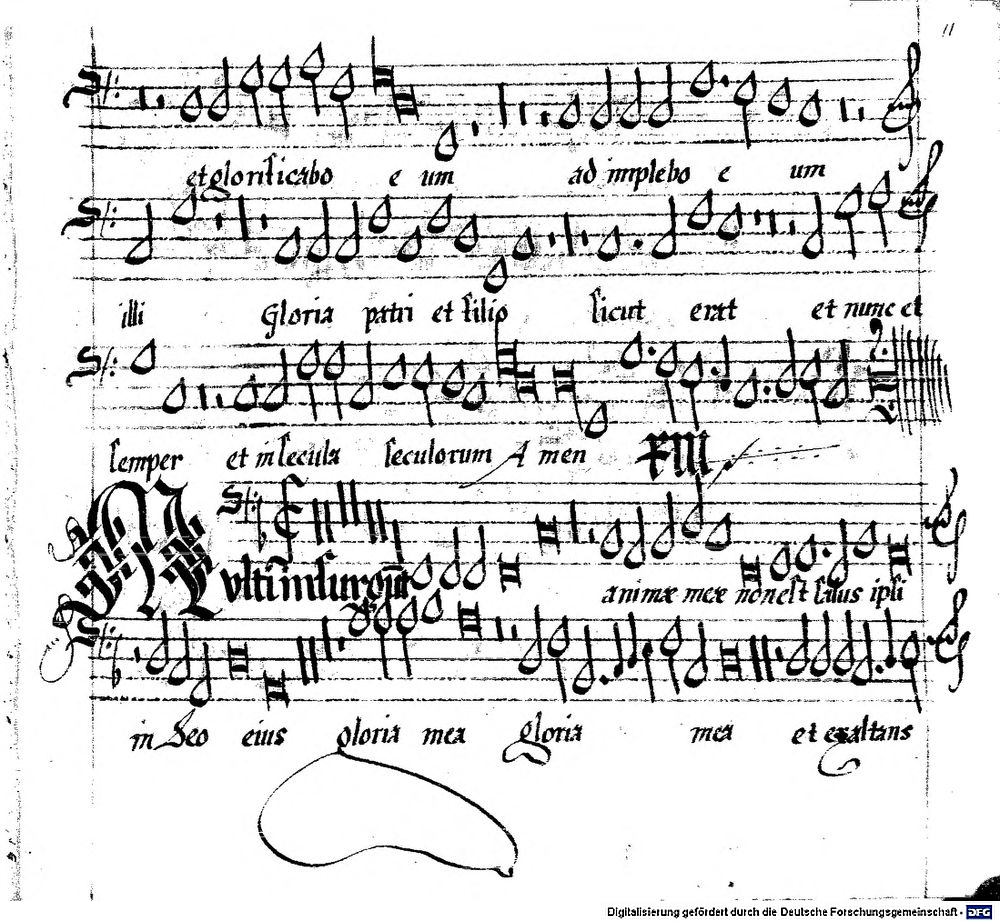 11
et glorificabo e um ad implebo e um
illi Gloria patri et filio sicut erat et nunc et
semper et in secula seculorum A men XIII
Multi insurgūt animæ meæ non est salus ipsi
in deo eius gloria mea gloria mea et exaltans
Digitalisierung gefördert durch die Deutsche Forschungsgemeinschaft - DFG